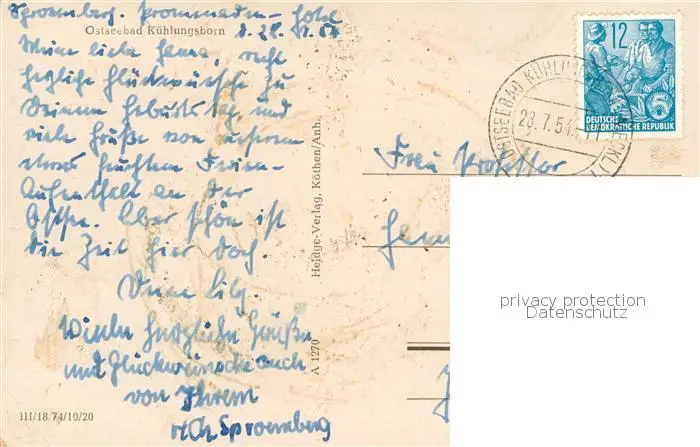 Spremberg. Promenaden-Hotel
Ostseebad Kühlungsborn
d. 28. 7. 54
Meine liebe Hanna, recht
herzliche Glückwünsche zu
Deinem Geburtstag, und
viele Grüße von unserem
etwas feuchten Ferien-
Aufenthalt an der
Ostsee. Aber schön ist
die Zeit hier doch.
Deine Lily.
Viele herzliche Grüße
und Glückwünsche auch
von Ihrem
Spremberg
III/18 74/10/20
A 1270
Heldge-Verlag, Köthen/Anh.
12
5
DEUTSCHE
DEMOKRATISCHE REPUBLIK
OSTSEEBAD KÜHLUNG
28.7.54
Frau Professor
privacy protection
Datenschutz